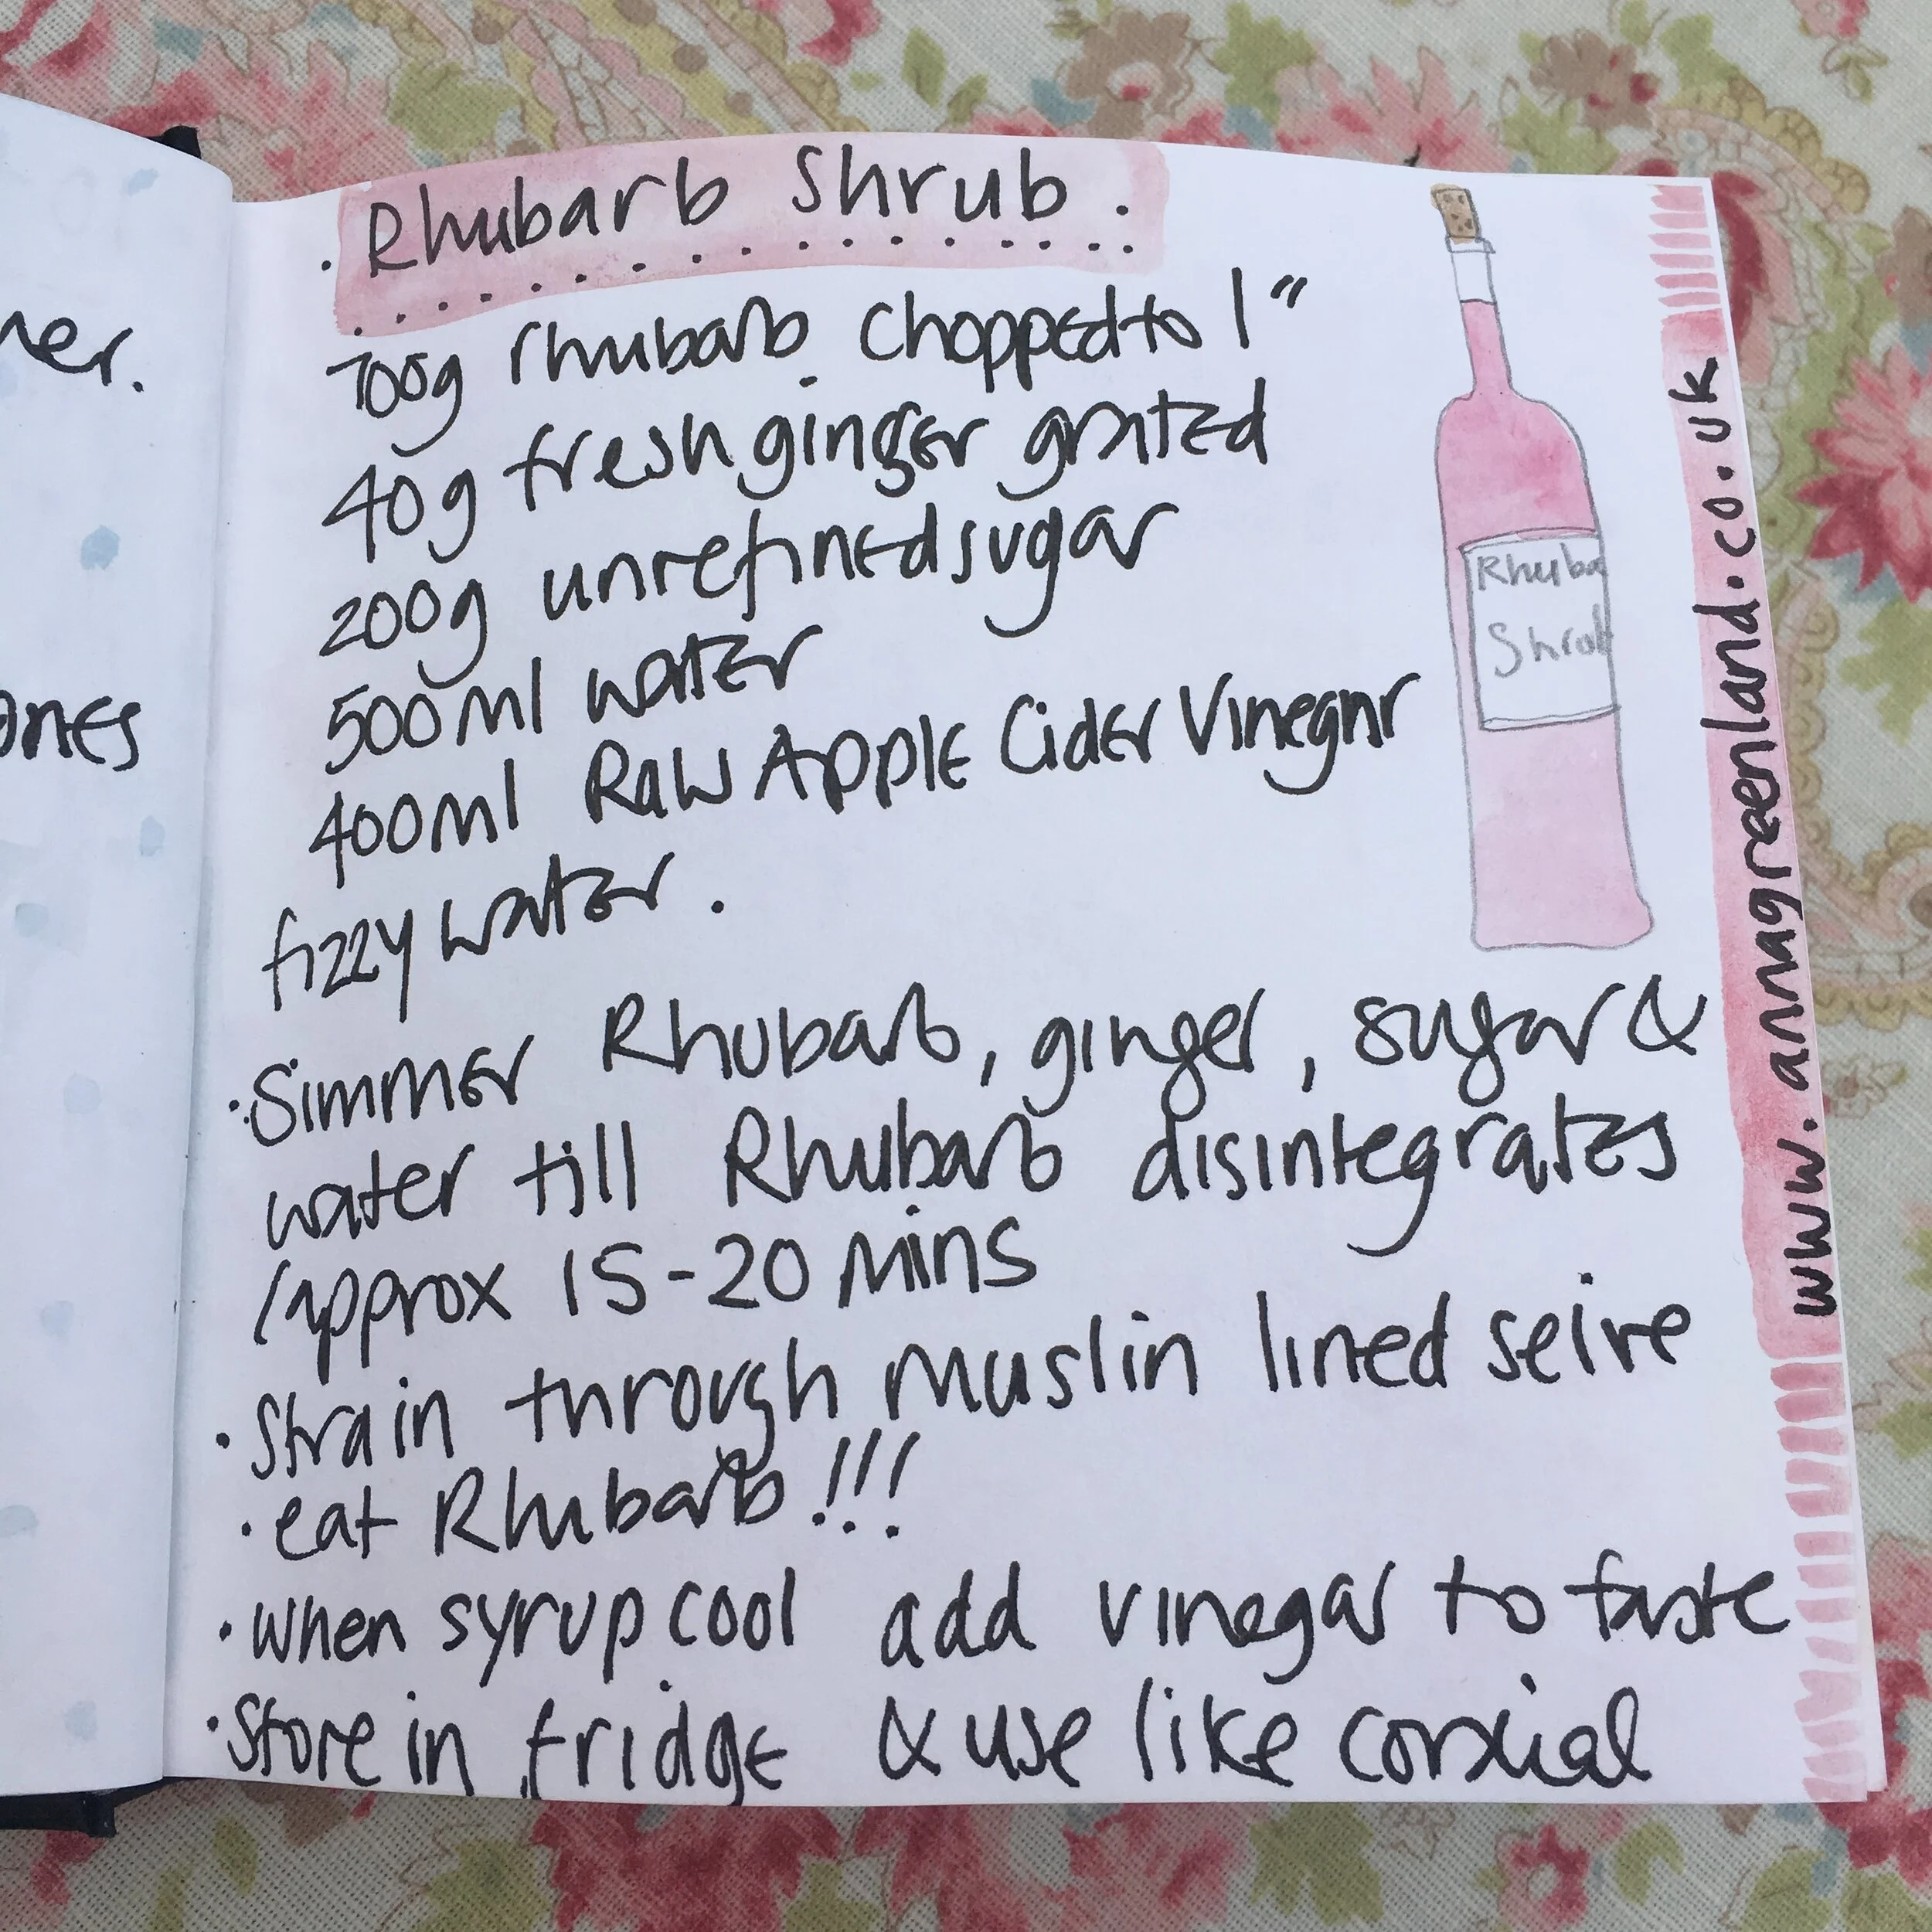 ner.
ones
. Rhubarb Shrub .
700g rhubarb chopped to 1"
40g fresh ginger grated
200g unrefined sugar
500ml water
400ml Raw Apple Cider Vinegar
fizzy water .
Rhuba
Shrub
· Simmer Rhubarb, ginger, sugar &
water till Rhubarb disintegrates
/approx 15-20 Mins
· Strain through Muslin lined seive
· eat Rhubarb!!!
· when syrup cool add vinegar to taste
· Store in fridge & use like cordial
www.annagreenland.co.uk